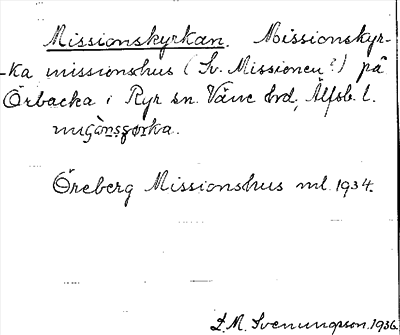 Missionskyrkan. Missionskyr-
-ka missionshus (Sv. Missionen?) på
Örbacka i Ryr sn. Väne hrd, Älfsb. l.
Öreberg Missionshus ml. 1934.
S. M. Svenungson. 1936.